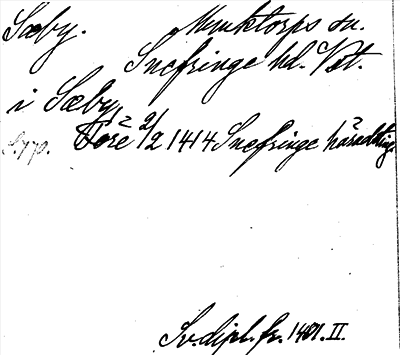 Sæby. Munktorps sn.
Snefringe hd. Vst.
i Sæby
Tore 2/2 1414 Snefringe häradsting
Sv. dipl. fr. 1401. II.